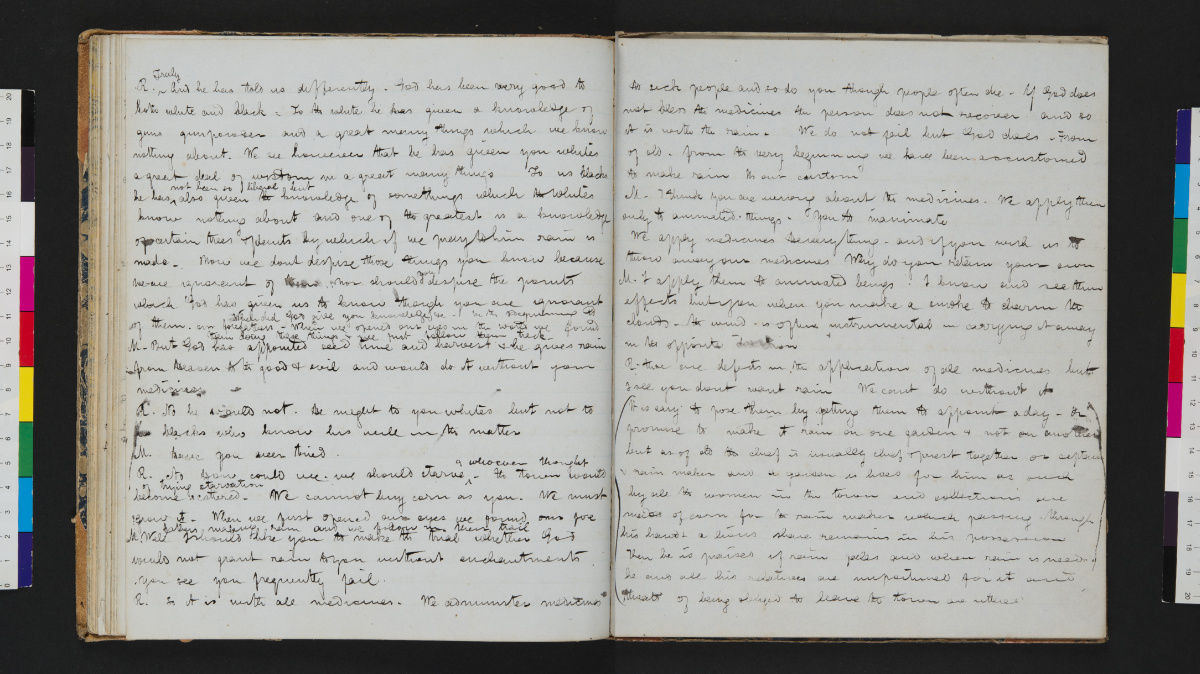 Truly
R. And he has told us differently. God has been very good to
both white and black = To the white he has given a knowledge of
guns gunpowder and a great many things which we know
nothing about. We see however that he has given you whites
a great deal of wisdom in a great many things To us blacks
not been so liberal but
he has also given the knowledge of somethings which the whites
know nothing about and one of the greatest is a knowledge
of certain trees & plants by which if we pray to him rain is
made -. Now we dont despise those things you know because
we are ignorant of them nor should you despise the plants
which God has given us to know though you are ignorant
of them. When did God give you knowledge - In the beginning to
our forefathers - When we opened our eyes in the world we found
them doing these things & we just follow their track
M. But God has appointed seed time and harvest & he gives rain
from heaven to the good & evil and would do it without your
medicines
R. No he would not. He might to you whites but not to
blacks who know his will in the matter
M. Have you ever tried.
R. No how could we. we should starve - & whoever thought
of trying starvation
the town would
become scattered. We cannot buy corn as you. We must
grow it - When we first opened our eyes we found our fore
fathers making rain and we follow in their trail
M. Well I should like you to make the trial whether God
would not grant rain to you without enchantments
you see you frequently fail.
R. So it is with all medicines. We administer medicines
to sick people and so do you though people often die - If God does
not bless the medicines the person does not recover and so
it is with the rain. We do not fail but God does. From
of old - from the very beginning we have been accustomed
to make rain tis our custom
M. I think you are wrong about the medicines. We apply them
only to animated things. You to inanimate
We apply medicines to everything - and if you wish us to
throw away our medicines Why do you retain your own
M. I apply them to animated beings & I know and see their
effects but you when you make a smoke to charm the
clouds - the wind is often instrumental in carrying it away
in the opposite direction
R. there are defects in the applications of all medicines but
I see you dont want rain We cant do without it
It is easy to pose them by getting them to appoint a day - or
promise to make it rain on one garden & not on another
but as of old the chief is usually chief priest together
& rain maker and a garden is hoed for him as such
by all the women in the town and collections are
made of corn for the rain maker which passing through
his hands a lions share remains in his possession
Then he is praised if rain falls and when rain is needed
he and all his relatives are importuned for it amid
threats of being obliged to leave the town